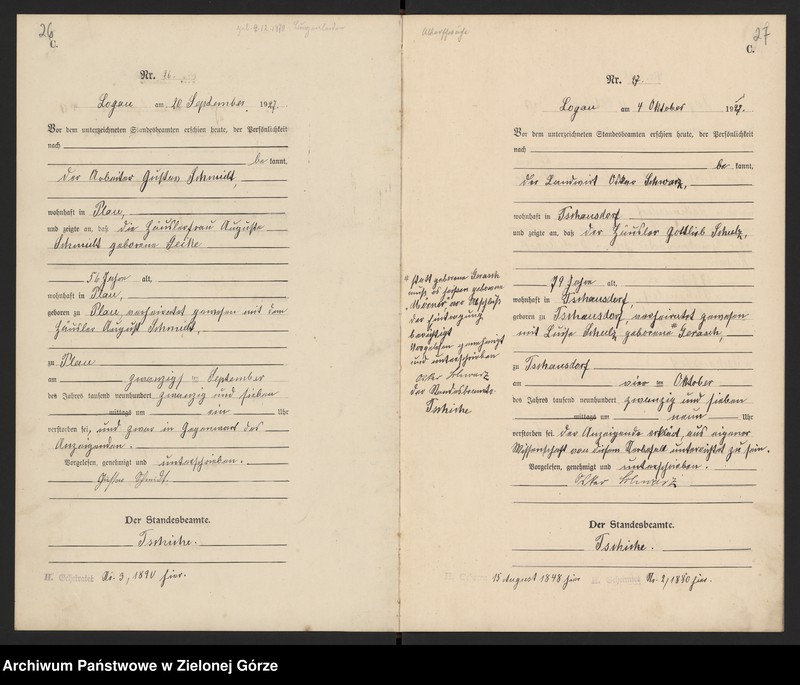 26
C.
Nr. 26.
Logau am 20 September 1927.
Vor dem unterzeichneten Standesbeamten erschien heute, der Persönlichkeit
nach
be kannt,
der Arbeiter Gustav Schmidt,
wohnhaft in Plau,
und zeigte an, daß die Häuslerfrau Auguste
Schmidt geborene
56 Jahre alt,
wohnhaft in Plau,
geboren zu Plau verheiratet gewesen mit dem
Häusler August Schmidt,
zu Plau
am zwanzigsten September
des Jahres tausend neunhundert zwanzig und sieben
mittags um ein Uhr
verstorben sei, und zwar in Gegenwart des
Anzeigenden.
Vorgelesen, genehmigt und unterschrieben.
Gustav Schmidt.
Der Standesbeamte.
Tschirke.
H. Geheiratet Nr. 3, 1890 hier.
27
C.
Nr. 27.
Logau am 4 Oktober 1927.
Vor dem unterzeichneten Standesbeamten erschien heute, der Persönlichkeit
nach
be kannt,
der Landwirt Oskar Schwarz,
wohnhaft in Tschausdorf
und zeigte an, daß der Häusler Gottlieb Schulz,
79 Jahre alt,
wohnhaft in Tschausdorf,
geboren zu Tschausdorf, verheiratet gewesen
mit Luise Schulz geborene * Gerasch,
zu Tschausdorf
am vier ten Oktober
des Jahres tausend neunhundert zwanzig und sieben
mittags um neun Uhr
verstorben sei. Der Anzeigende erklärt, aus eigener
Wissenschaft von diesem Sterbefall unterrichtet zu sein.
Vorgelesen, genehmigt und unterschrieben.
Oskar Schwarz
Der Standesbeamte.
Tschirke.
15 August 1848 hier H. Geheiratet Nr. 2, 1880 hier.
* statt geborene Gerasch
muß es heißen geborene
der Eintragung
berichtigt
Vorgelesen genehmigt
und unterschrieben
Oskar Schwarz
Der Standesbeamte
Tschirke
Archiwum Państwowe w Zielonej Górze